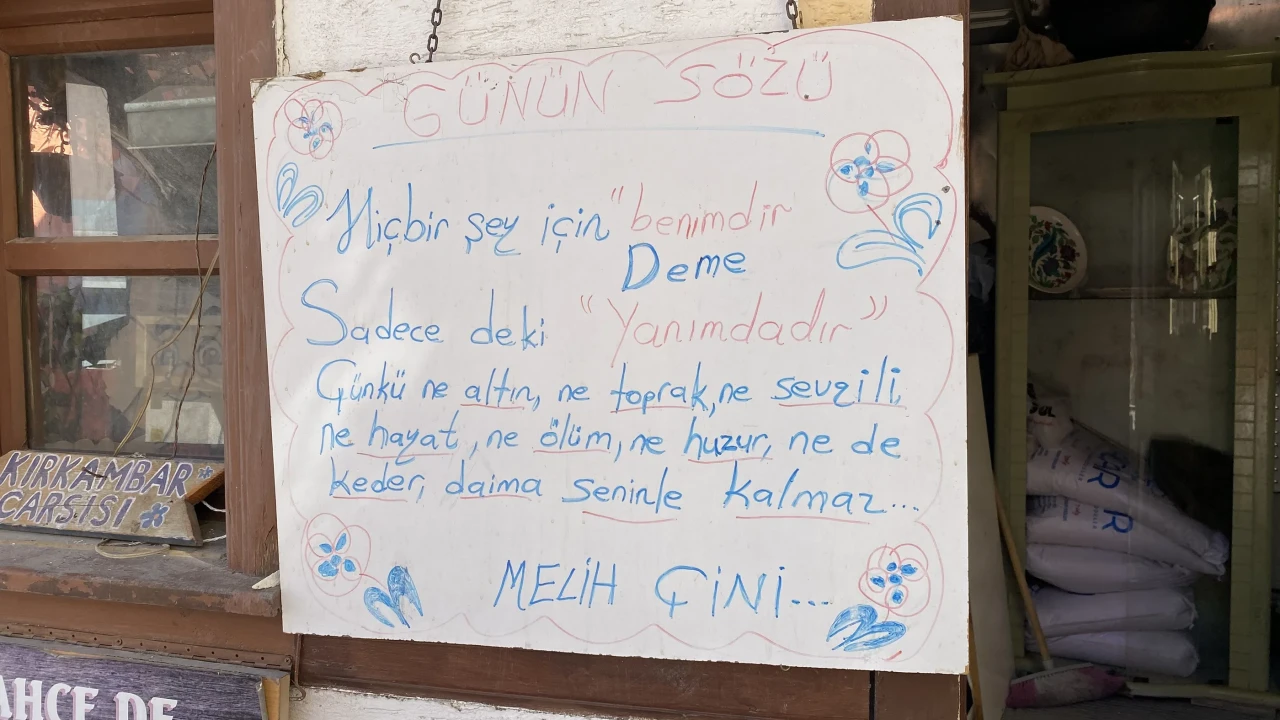 GÜNÜN SÖZÜ
Hiçbir şey için "benimdir
Deme
Sadece deki "Yanımdadır"
Çünkü ne altın, ne toprak, ne sevgili,
ne hayat, ne ölüm, ne huzur, ne de
keder, daima seninle kalmaz...
MELİH ÇİNİ...
KIRKAMBAR
ÇARŞISI
AHÇE DE